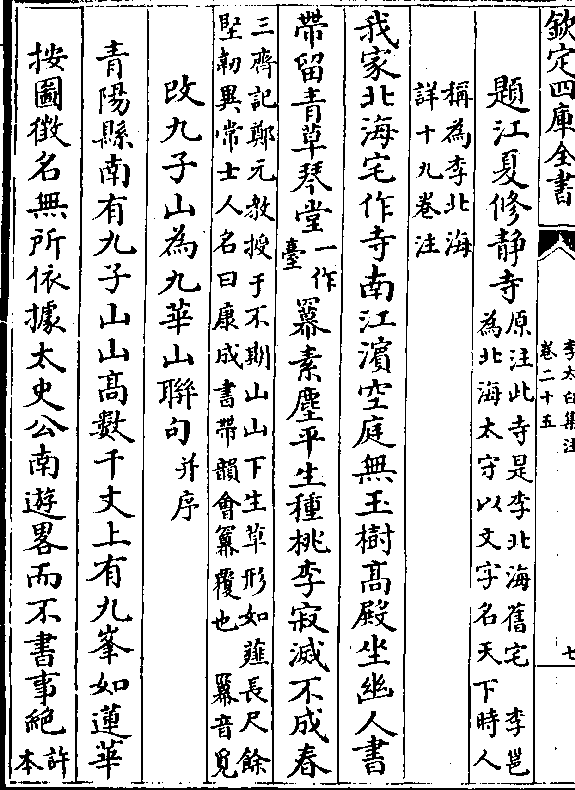 欽定四庫全書
李太白集注
卷二十五
七
題江夏修靜寺原注此寺是李北海舊宅　李邕
為北海太守以文字名天下時人
稱為李北海
詳十九卷注
我家北海宅作寺南江濱空庭無玉樹髙殿坐幽人書
帶留青草琴堂一作臺羃素塵平生種桃李寂滅不成春
三齊記鄭元教授于不期山山下生草形如薤長尺餘
堅韌異常士人名曰康成書帶韻會羃覆也　羃音覓
改九子山為九華山聯句并序
青陽縣南有九子山山髙數千丈上有九峯如蓮華
按圖徵名無所依據太史公南遊畧而不書事絶許本